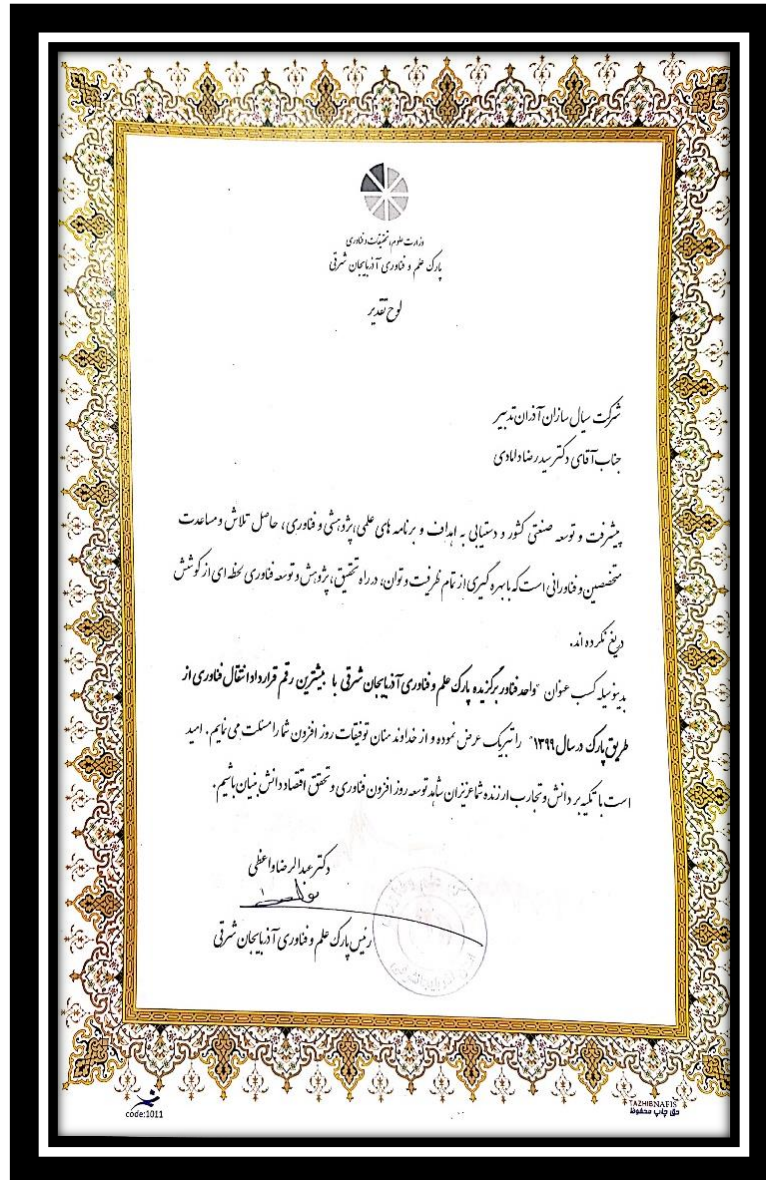 وزارت علوم، تحقیقات و فناوری
پارک علم و فناوری آذربایجان شرقی
لوح تقدیر
شرکت سیال سازان آذران تدبیر
جناب آقای دکتر سیدرضا دلبادی
پیشرفت و توسعه صنعتی کشور و دستیابی به اهداف و برنامه های علمی، پژوهشی و فناوری، حاصل تلاش و مساعدت
متخصصین و فناورانی است که با بهره گیری از تمام ظرفیت و توان، در راه تحقیق، پژوهش و توسعه فناوری لحظه ای از کوشش
دریغ نکرده اند.
بدینوسیله کسب عنوان "واحد فناور برگزیده پارک علم و فناوری آذربایجان شرقی با بیشترین رقم قرارداد انتقال فناوری از
طریق پارک در سال ۱۳۹۹" را تبریک عرض نموده و از خداوند منان توفیقات روز افزون شما را مسئلت می نمایم. امید
است با تکیه بر دانش و تجارب ارزنده شما عزیزان شاهد توسعه روز افزون فناوری و تحقق اقتصاد دانش بنیان باشیم.
دکتر عبدالرضا واعظی
رئیس پارک علم و فناوری آذربایجان شرقی
code:1011
TAZHIBNAFIS
حق چاپ محفوظ